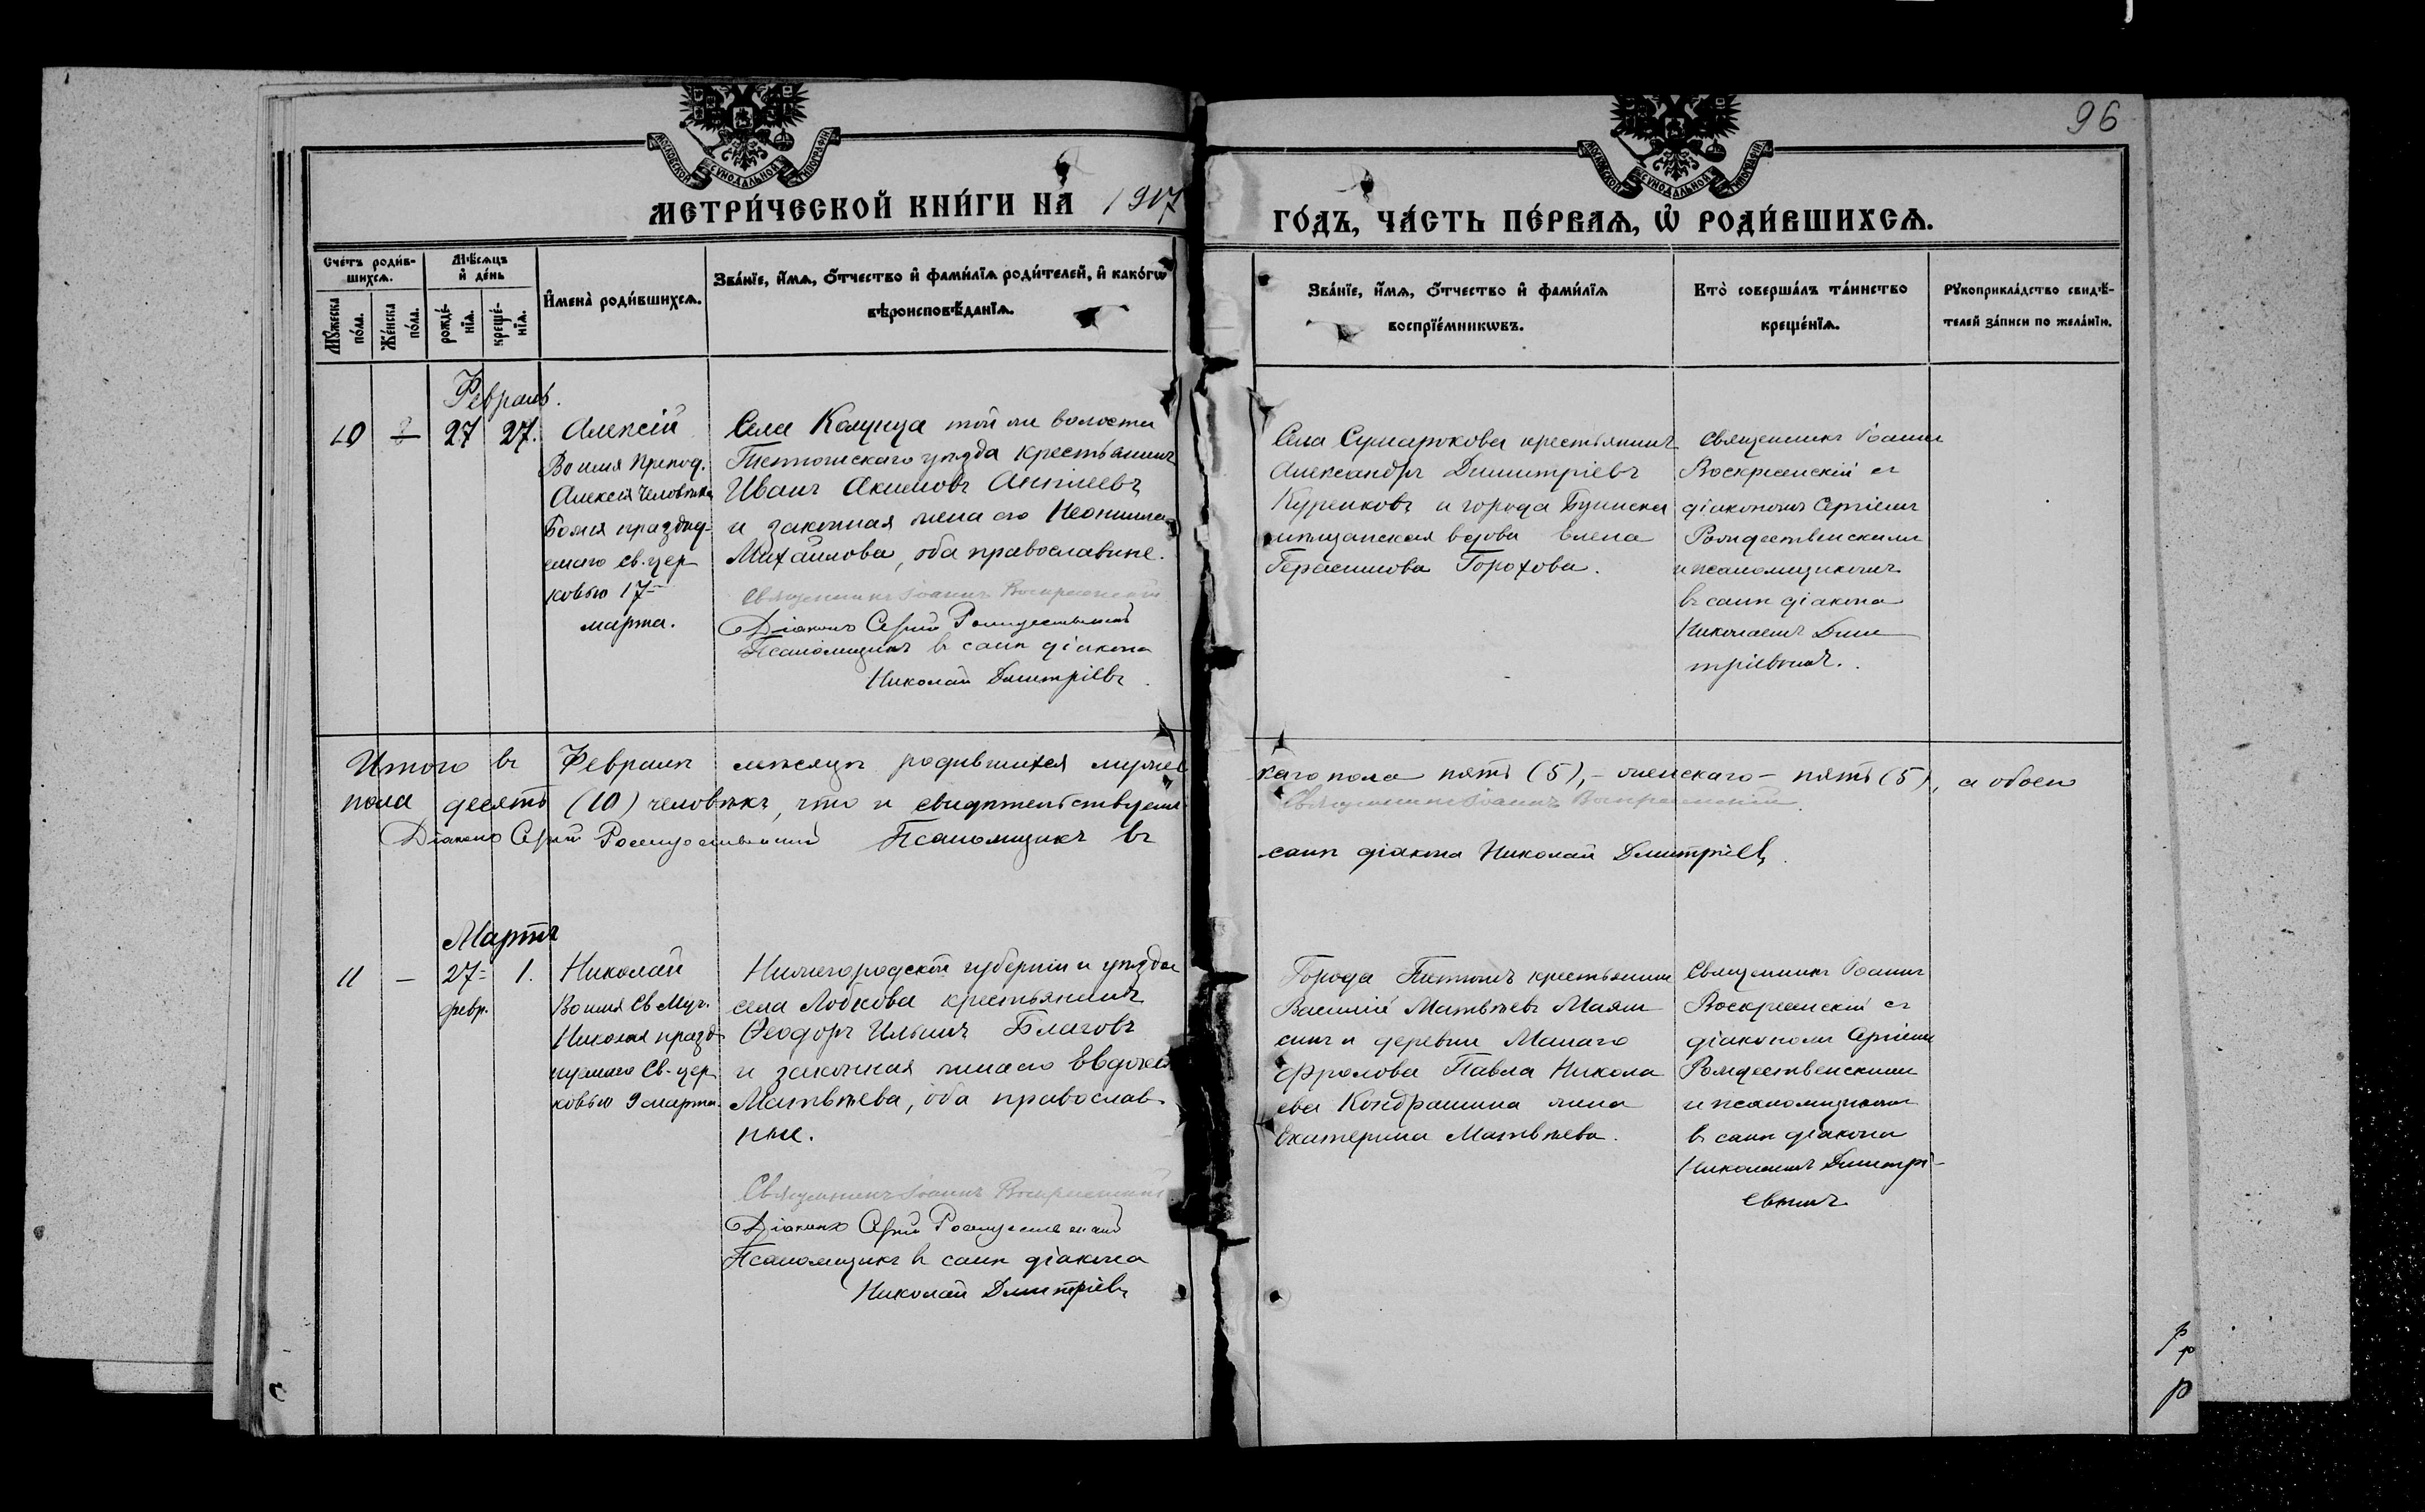 96
МОСКОВСКОЙ СѴНОДАЛЬНОЙ ТИПОГРАФІИ
МОСКОВСКОЙ СѴНОДАЛЬНОЙ ТИПОГРАФІИ
МЕТРИ́ЧЕСКОЙ КНИ́ГИ НА̀ 1907
ГО́ДЪ, ЧА́СТЬ ПЕ́РВАѦ, Ѡ҆ РОДИ́ВШИХСѦ.
Сче́тъ роди́в-
шихсѧ.
Мꙋ́жеска по́ла.
Же́нска по́ла.
Мѣ́сѧцъ и҆ де́нь
рожде́-
нїѧ.
креще́-
нїѧ.
И҆мена̀ роди́вшихсѧ.
Зва́нїе, и҆́мѧ, ѻ҆́тчество и҆ фами́лїѧ роди́телей, и҆ како́гѡ
вѣроисповѣ́данїѧ.
Зва́нїе, и҆́мѧ, ѻ҆́тчество и҆ фами́лїѧ
воспрїе́мникѡвъ.
Кто̀ соверша́лъ та́инство
креще́нїѧ.
Рꙋкоприкла́дство свидѣ́-
телей за́писи по жела́нїю.
Февраль.
10 – 27 27.
Алексій
Во имя Препод.
Алексія Человѣка
Божія праздну-
емаго св. цер
ковью 17-
марта.
Села Колунца той же волости
Тетюшскаго уѣзда крестьянинъ
Иванъ Акимовъ
и законная жена его Неонила
Михайлова, оба православные.
Священникъ Іоаннъ Воскресенскій
Діаконъ Сергій Рождественскій
Псаломщикъ въ санѣ діакона
Николай Дмитріевъ
Села Сумарокова крестьянинъ
Александръ Димитріевъ
Куренковъ и города Буинска
мѣщанская вдова Елена
Герасимова Горохова.
Священникъ Іоаннъ
Воскресенскій съ
діакономъ Сергіемъ
Рождественскимъ
и псаломщикомъ
въ санѣ діакона
Николаемъ Дими
тріевымъ.
Итого въ Февралѣ мѣсяцѣ родившихся мужес
каго пола пять (5), – женскаго – пять (5), а обоего
пола десять (10) человѣкъ, что и свидѣтельствуемъ
Священникъ Іоаннъ Воскресенскій.
Діаконъ Сергій Рождественскій Псаломщикъ въ
санѣ діакона Николай Дмитріевъ.
Мартъ
11 – 27- 1.
февр.
Николай
Во имя Св Муч.
Николая празд
нуемаго Св. цер
ковью 9 марта.
Нижегородской губерніи и уѣзда
села Лобкова крестьянинъ
Ѳеодоръ Ильинъ Благовъ
и законная жена его Евдокія
Матвѣева, оба православ-
ные.
Священникъ Іоаннъ Воскресенскій
Діаконъ Сергій Рождественскій
Псаломщикъ въ санѣ діакона
Николай Дмитріевъ
Города Тетюшъ крестьянинъ
Василій Матвѣевъ Маям
синъ и деревни Малаго
Фролова Павла Никола
ева Кондрашина жена
Екатерина Матвѣева.
Священникъ Іоаннъ
Воскресенскій съ
діакономъ Сергіемъ
Рождественскимъ
и псаломщикомъ
въ санѣ діакона
Николаемъ Димитрі-
евымъ